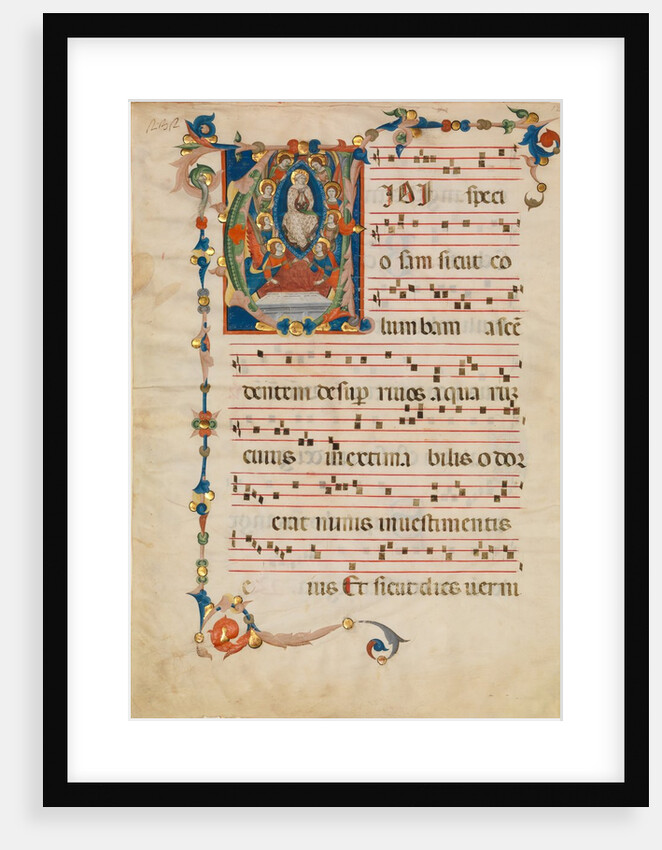 VIDI speci
o sam sicut co
lumbam ascē
dentem desup riuos aqua ruz
cuius inextima bilis odor
erat nimis inuestimentis
e ius Et sicut dies uerni